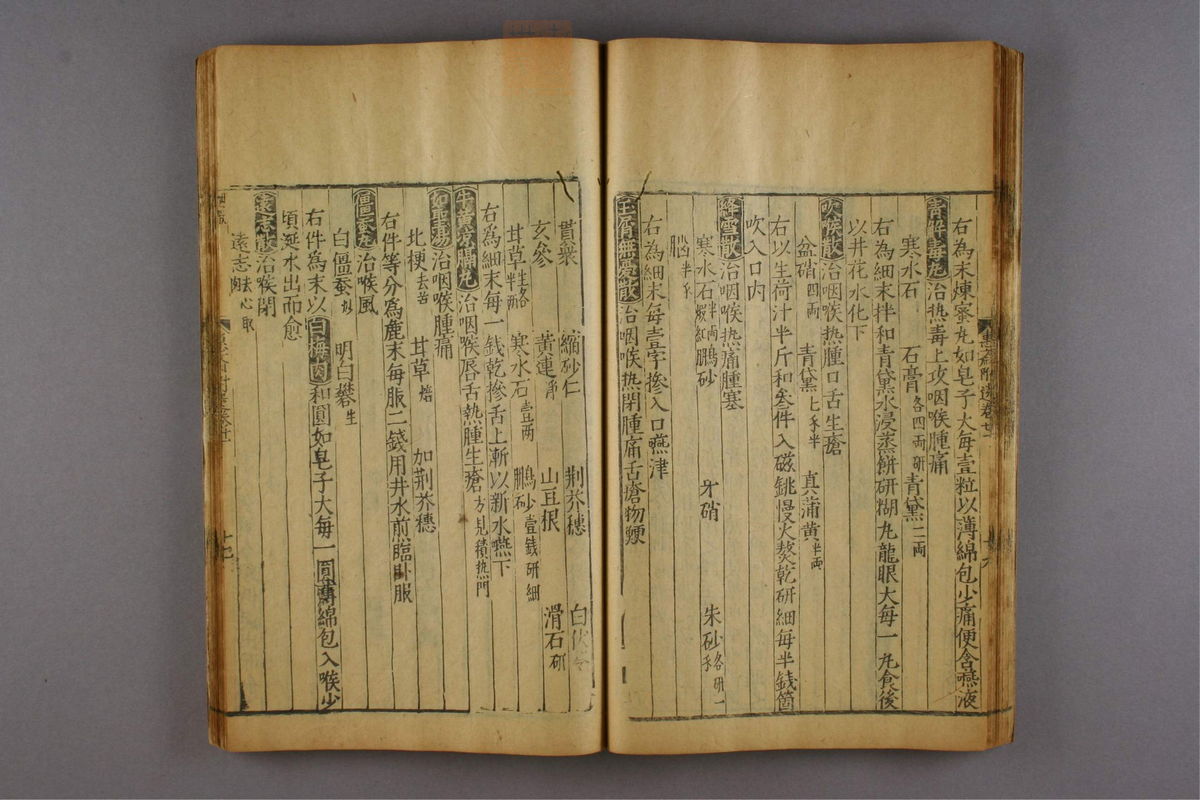 右為末煉蜜丸如皂子大每壹粒以薄綿包少痛便含嚥液
青解毒丸治热毒上攻咽喉腫痛
寒水石 石膏各四兩研 青黛二兩
右為細末拌和青黛水浸蒸餅研糊丸龍眼大每一丸食後
以井花水化下
吹喉散治咽喉热腫口舌生瘡
盆硝四兩 青黛 真蒲黃半兩
右以生荷汁半斤和矣件入磁銚慢火熬乾研細每半錢箇
吹入口内
絳雪散治咽喉热痛腫塞
寒水石半兩煅紅 鵬砂 牙硝 朱砂各研一
腦半
右為細末每壹字摻入口嚥津
玉屑無憂散治咽喉热閉腫痛舌瘡物鯁
貫衆 縮砂仁 荆芥穗 白伏令
玄參 黃連淨 山豆根 滑石研
甘草生各半兩 寒水石壹两 鵬砂壹錢研細
右為細末每一錢乾摻舌上漸以新水嚥下
牛黃凉膈丸治咽喉唇舌熱腫生瘡方見積热門
如聖湯治咽喉腫痛
北梗去苦 甘草焙 加荆芥穗
右件等分為麄末每服二錢用井水煎臨卧服
僵蚕丸治喉風
白僵蚕炒 明白礬生
右件為末以白梅肉和圓如皂子大每一圓薄綿包入喉少
頃涎水出而愈
遠志散治喉閉
遠志去心取肉